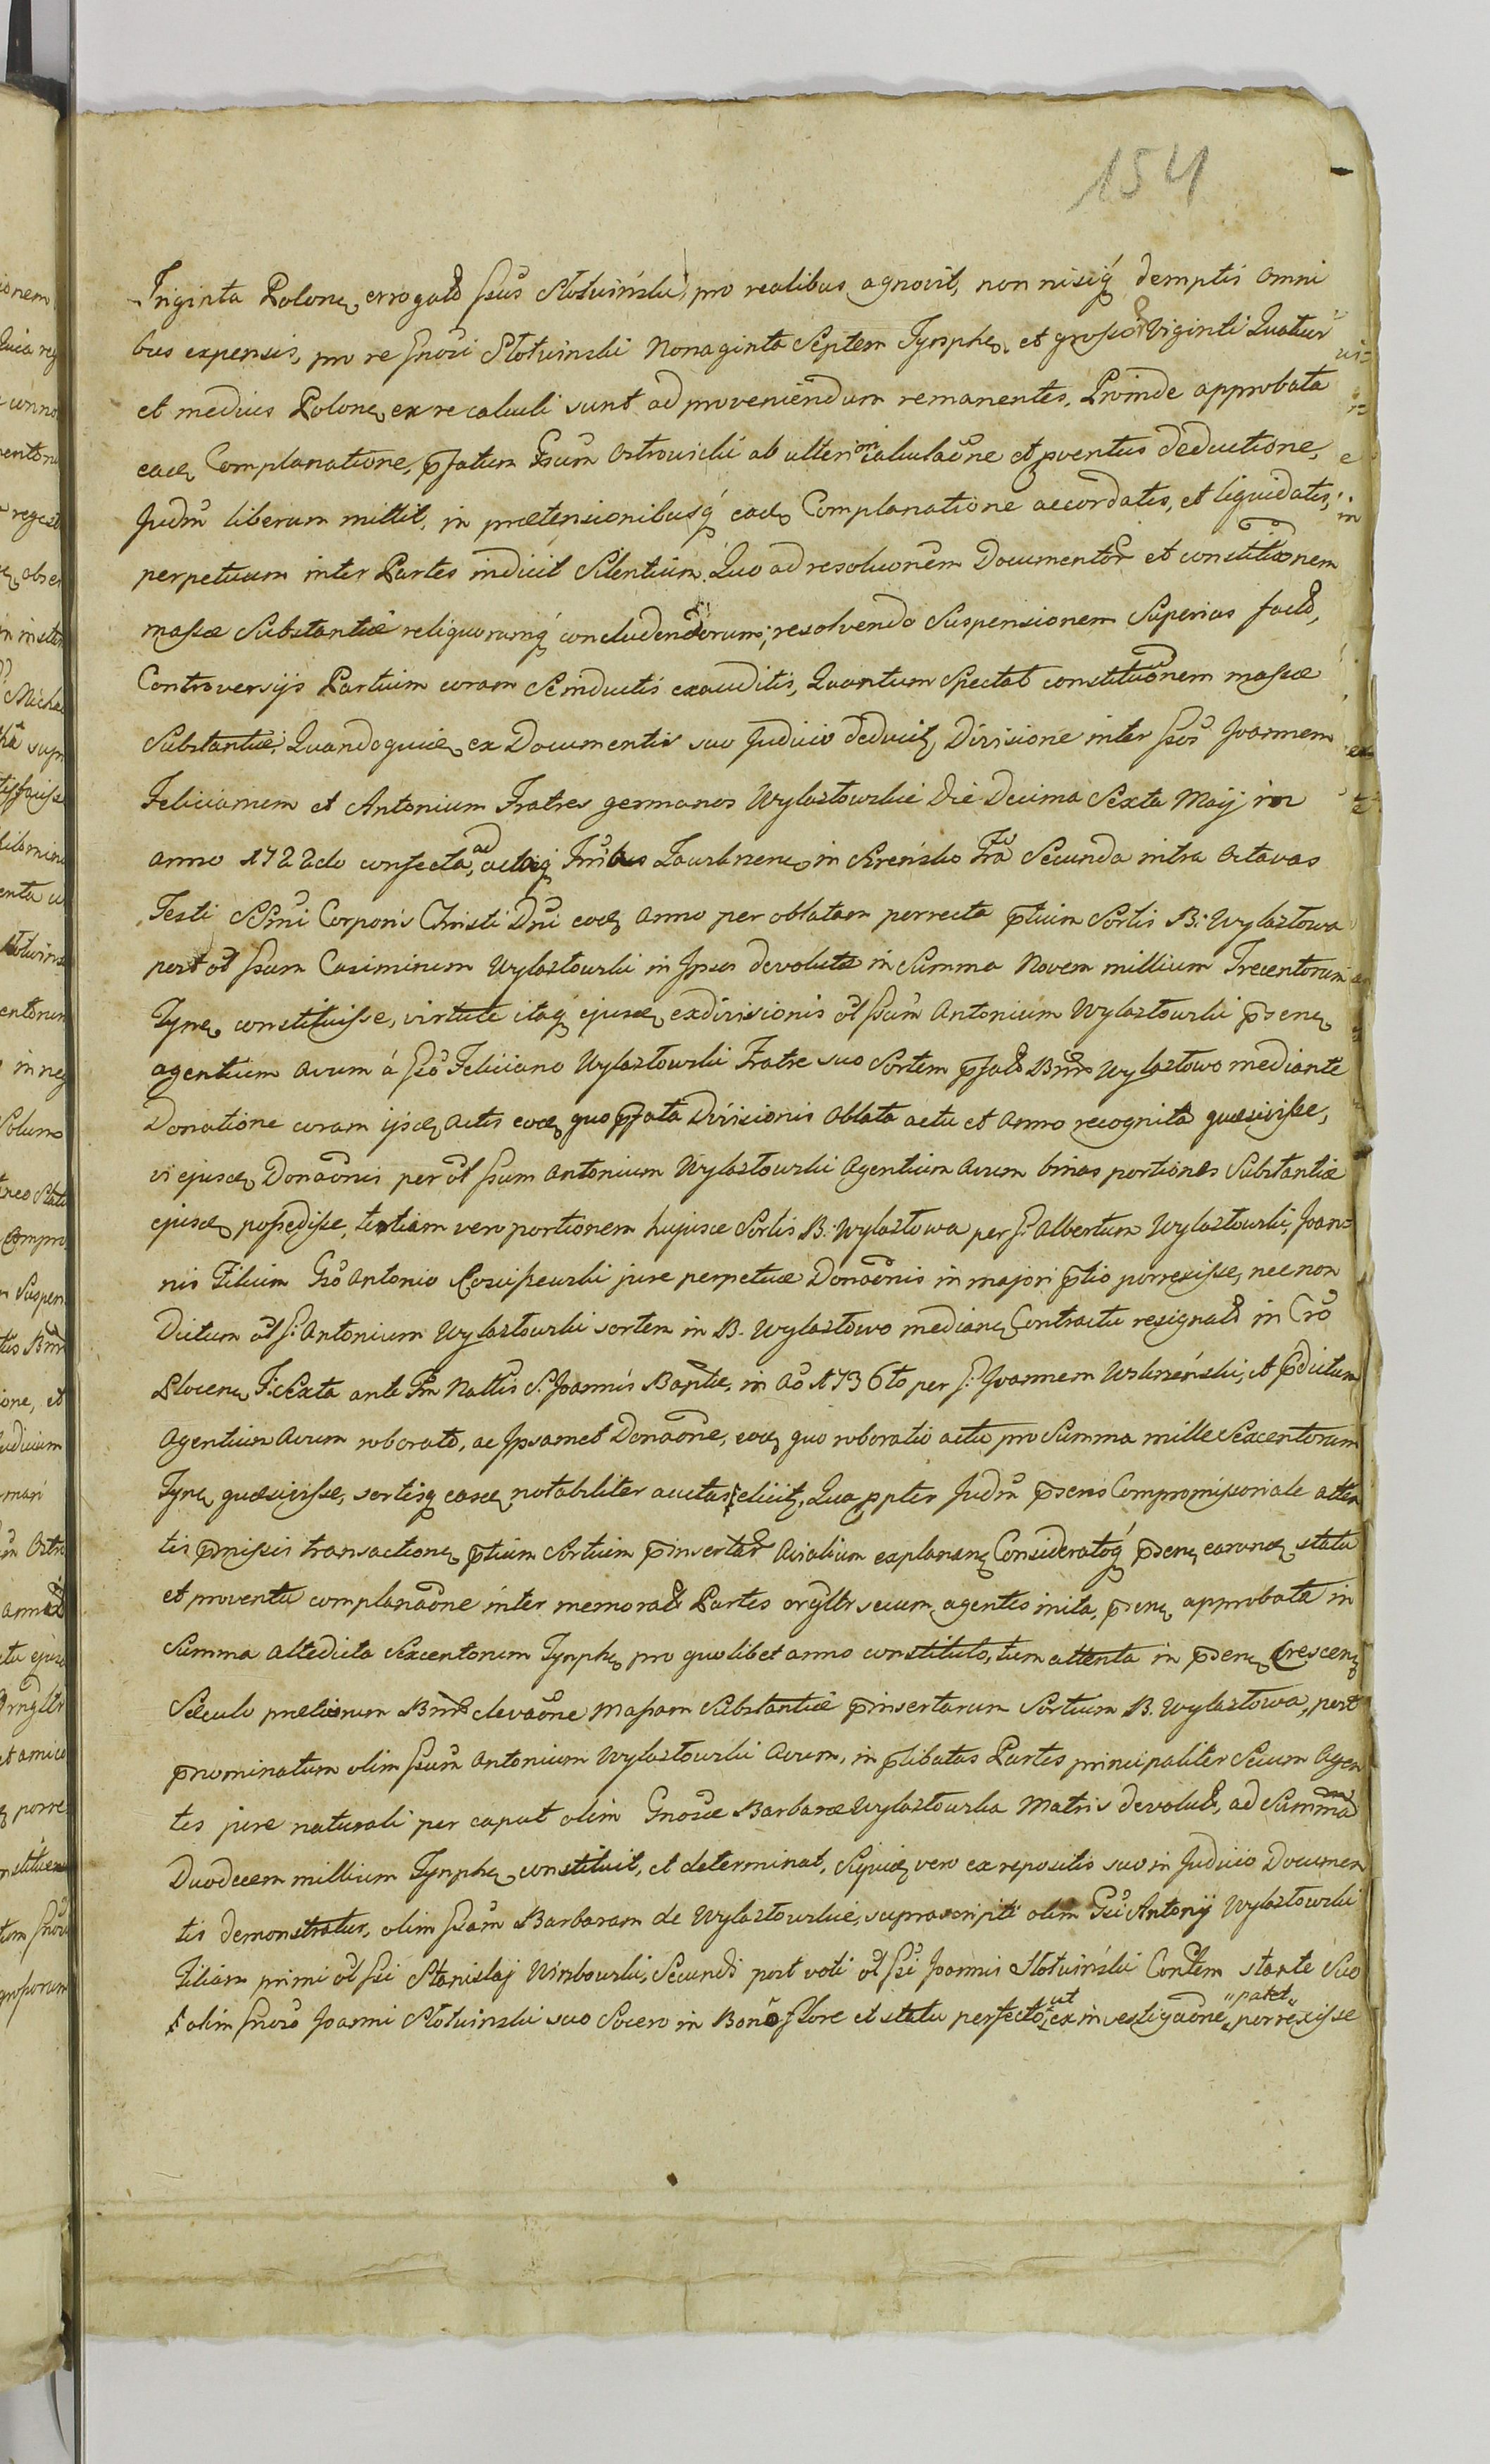 154
Triginta Polonę erogatō Gsus Słotwiński, pro realibus agnovit, non nisiq́ demptis omni
bus expensis, pro re Gnosi Słotwinski Nonaginta Septem Tynphę et grossor Viginti Quatuor
et medius Polonę ex re calculi sunt ad proveniendum remanentes. Proinde approbata
eadę Complanatione, pfatum Gsum Ostrowicki ab ulteriori calculaōne et pventus deductione,
Judm liberum mittit, in prætensionibusq́ eadę Complanatione accordatis, et liquidatis,
perpetuum inter Partes indicit Silentium. Quo ad resoluonem Documentor et constitūonem
massæ Substantiæ reliquorumq́ concludendorum; resolvendo Suspensionem Superius factō,
Controversijs Partium coram Se inductis exauditis, Quantum Spectat constituōnem massæ
Substantiæ, Quandoquidę ex Documentis suo Judicio deducitę Divisione inter Gsos Joannem
Felicianum et Antonium Fratres germanos Wylaztowskie Die Decima Sexta Maij in
anno 1722do confecta, ad actaq́ Tribus Zawkrzenę in Szreńsko Fra Secunda intra Octavas
Festi SSmi Corporis Christi Dni eodę Anno per oblatam porrecta ptium Sortis B: Wylaztowa
post ol Gsum Casimirum Wylaztowski in Ipsos devolutæ in Summa Novem millium Trecentorum
Tynę constituisse, virtute itaq́ ejusdę exdivisionis ol Gsum Antonium Wylaztowski psenę
agentium Avum á Gso Feliciano Wylaztowski Fratre suo Sortem pfatō Bnr Wylaztowo mediante
Donatione coram ijsdę Actis eodę quo pfata Divisionis Oblata actu et Anno recognita quæsivisse,
vi ejusdę Donaōnis per ol Gsum Antonium Wylaztowski Agentium Avum binas portiones Substantiæ
ejusdę possedisse, tertiam vero portionem hujusce Sortis B: Wylaztowa per G. Albertum Wylaztowski, Joan=
nis Filium Gso Antonio Kosiszewski jure perpetuæ Donaōnis in majori ptio porrexisse, nec non
Dictum ol G: Antonium Wylaztowski sortem in B. Wylaztowo medianę Contractu resignatō in Cro
Plocenę F: Sexta ante Fm Nattis S. Joannis Baptæ, in Aō 1736to per G: Joannem Uzkrzeński, et pdictum
Agentium Avum roborato, ac Ipsamet Donaōne, eodę quo roboratio actu pro Summa mille Sexcentorum
Tynę quæsivisse, sortisq́ easdę notabiliter auctas elicitę, Qua ppter Judm psens Compromissoriale atten
tis pmissis transactionę ptium Sortium pinsertar Avialium explananę Consideratoq́ psenę earundę statu
et proventu complanaōne inter memoratō Partes orgltr secum agentes inita, psenę approbata in
Summa altedicta Sexcentorum Tynphę pro quolibet anno constituto, tum attenta in psenę Crescenę
Seculo pretiorum Bnr elevaōne Massam Substantiæ pinsertarum Sortium B. Wylaztowa, post
pnominatum olim Gsum Antonium Wylaztowski Avum, in plibatas Partes principaliter Secum Agen
tes jure naturali per caput olim Gnosæ Barbaræ Wylaztowska Matris devolutō, ad Summam
Duodecem millium Tynphę constituit, et determinat, Siquidę vero ex repositis suo in Judicio Documen
tis demonstratur, olim Gsam Barbaram de Wylaztowskie, suprascripti olim Gsi Antonij Wylaztowski
Filiam primi ol Gsi Stanislaj Nimbowski, Secundi post voti ol Gsi Joannis Słotwiński Contem stante Suo
olim Gnoso Joanni Słotwinski suo Socero in Bonō flore et statu perfecto, ut ex investigaōne „patet„ porrexisse